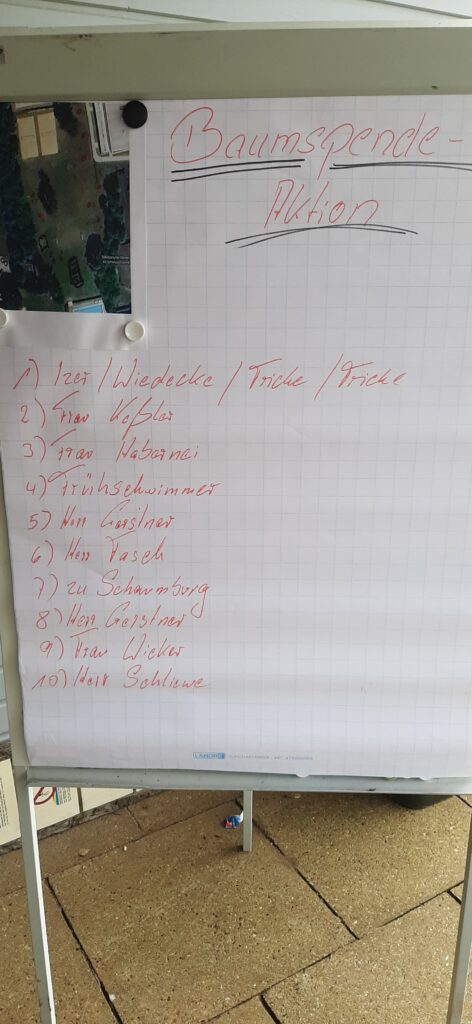 Baumspende-
Aktion
1) Izer / Wiedecke / Fricke / Fricke
2) Frau Keßler
3) Frau Habernei
4) Frühschwimmer
5) Herr Gerstner
6) Herr Fasch
7) zu Schaumburg
8) Herr Gerstner
9) Frau Wicker
10) Herr Schliewe
LANDRÉ